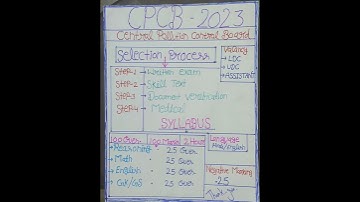 CPCB - 2023
Central Pollution Control Board
Selection Process
Vacancy
→ LDC
→ UDC
→ ASSISTANT
STEP-1 → Written Exam
STEP-2 → Skill Test
STEP-3 → Document Verification
STEP-4 → Medical
SYLLABUS
100 Ques 100 Marks 2 Hours
Language
Hindi/English
Reasoning - 25 Ques
Math - 25 Ques
English - 25 Ques
GK/GS - 25 Ques
Negative Marking
.25
Thank